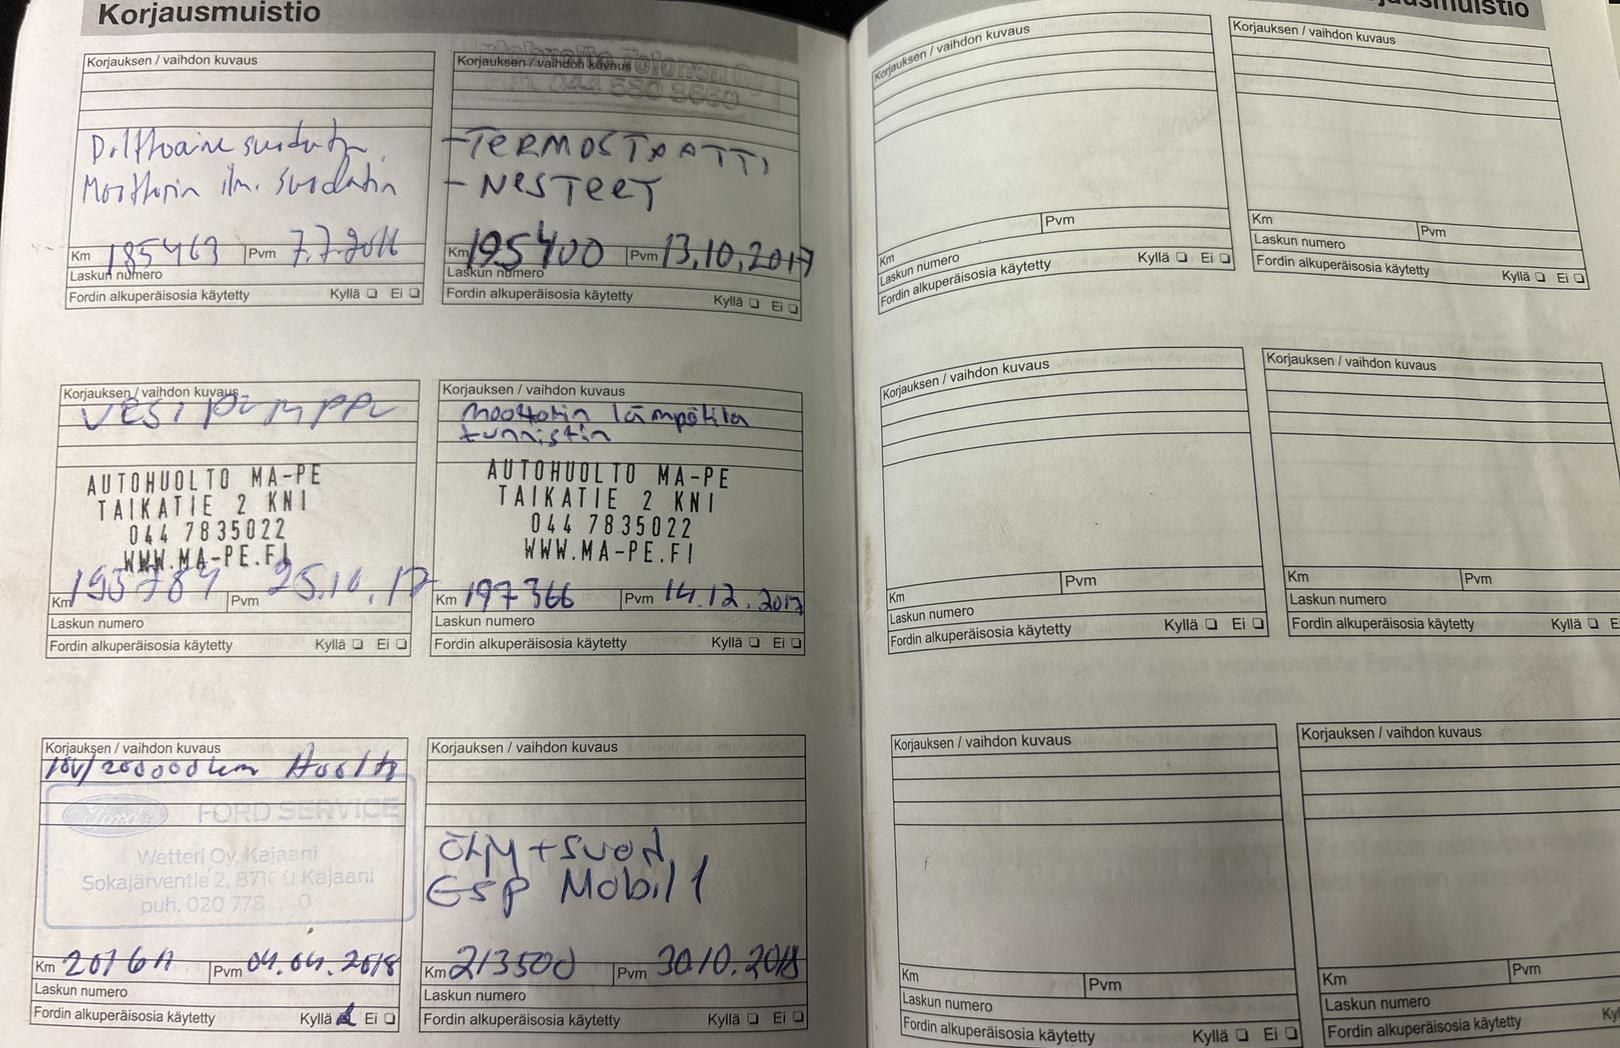 Korjausmuistio
Korjauksen / vaihdon kuvaus
Moottorin ilm. suodatin
Km 185463 Pvm 7.7.2016
Laskun numero
Fordin alkuperäisosia käytetty Kyllä ❏ Ei ❏
Korjauksen / vaihdon kuvaus
-TERMOSTAATTI
- NESTEET
Km 195400 Pvm 13.10.2017
Laskun numero
Fordin alkuperäisosia käytetty Kyllä ❏ Ei ❏
Korjauksen / vaihdon kuvaus
vesipumppu
AUTOHUOLTO MA-PE
TAIKATIE 2 KNI
044 7835022
WWW.MA-PE.FI
Km 195784 Pvm 25.10.17
Laskun numero
Fordin alkuperäisosia käytetty Kyllä ❏ Ei ❏
Korjauksen / vaihdon kuvaus
moottorin lämpötila
tunnistin
AUTOHUOLTO MA-PE
TAIKATIE 2 KNI
044 7835022
WWW.MA-PE.FI
Km 197366 Pvm 14.12.2017
Laskun numero
Fordin alkuperäisosia käytetty Kyllä ❏ Ei ❏
Korjauksen / vaihdon kuvaus
10v/200000km Huolto
Ford FORD SERVICE
Wetteri Oy, Kajaani
Sokajärventie 2, Kajaani
puh. 020 778
Km Pvm 04.04.2018
Laskun numero
Fordin alkuperäisosia käytetty Kyllä Ei ❏
Korjauksen / vaihdon kuvaus
ÖLJY + SUOD.
ESP Mobil 1
Km 213500 Pvm 30.10.2018
Laskun numero
Fordin alkuperäisosia käytetty Kyllä ❏ Ei ❏
Korjauksen / vaihdon kuvaus
Km Pvm
Laskun numero
Fordin alkuperäisosia käytetty Kyllä ❏ Ei ❏
Korjauksen / vaihdon kuvaus
Km Pvm
Laskun numero
Fordin alkuperäisosia käytetty Kyllä ❏ Ei ❏
Korjauksen / vaihdon kuvaus
Km Pvm
Laskun numero
Fordin alkuperäisosia käytetty Kyllä ❏ Ei ❏
Korjauksen / vaihdon kuvaus
Km Pvm
Laskun numero
Fordin alkuperäisosia käytetty Kyllä ❏ E
Korjauksen / vaihdon kuvaus
Km Pvm
Laskun numero
Fordin alkuperäisosia käytetty Kyllä ❏ Ei ❏
Korjauksen / vaihdon kuvaus
Km Pvm
Laskun numero
Fordin alkuperäisosia käytetty Ky